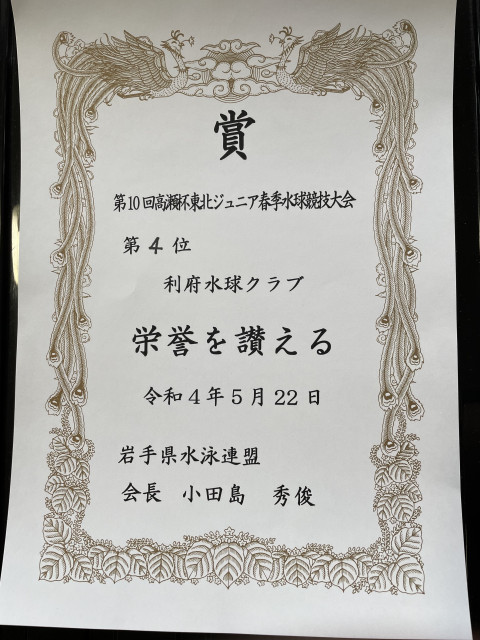 賞
第10回高瀬杯東北ジュニア春季水球競技大会
第4位
利府水球クラブ
栄誉を讃える
令和4年5月22日
岩手県水泳連盟
会長 小田島 秀俊